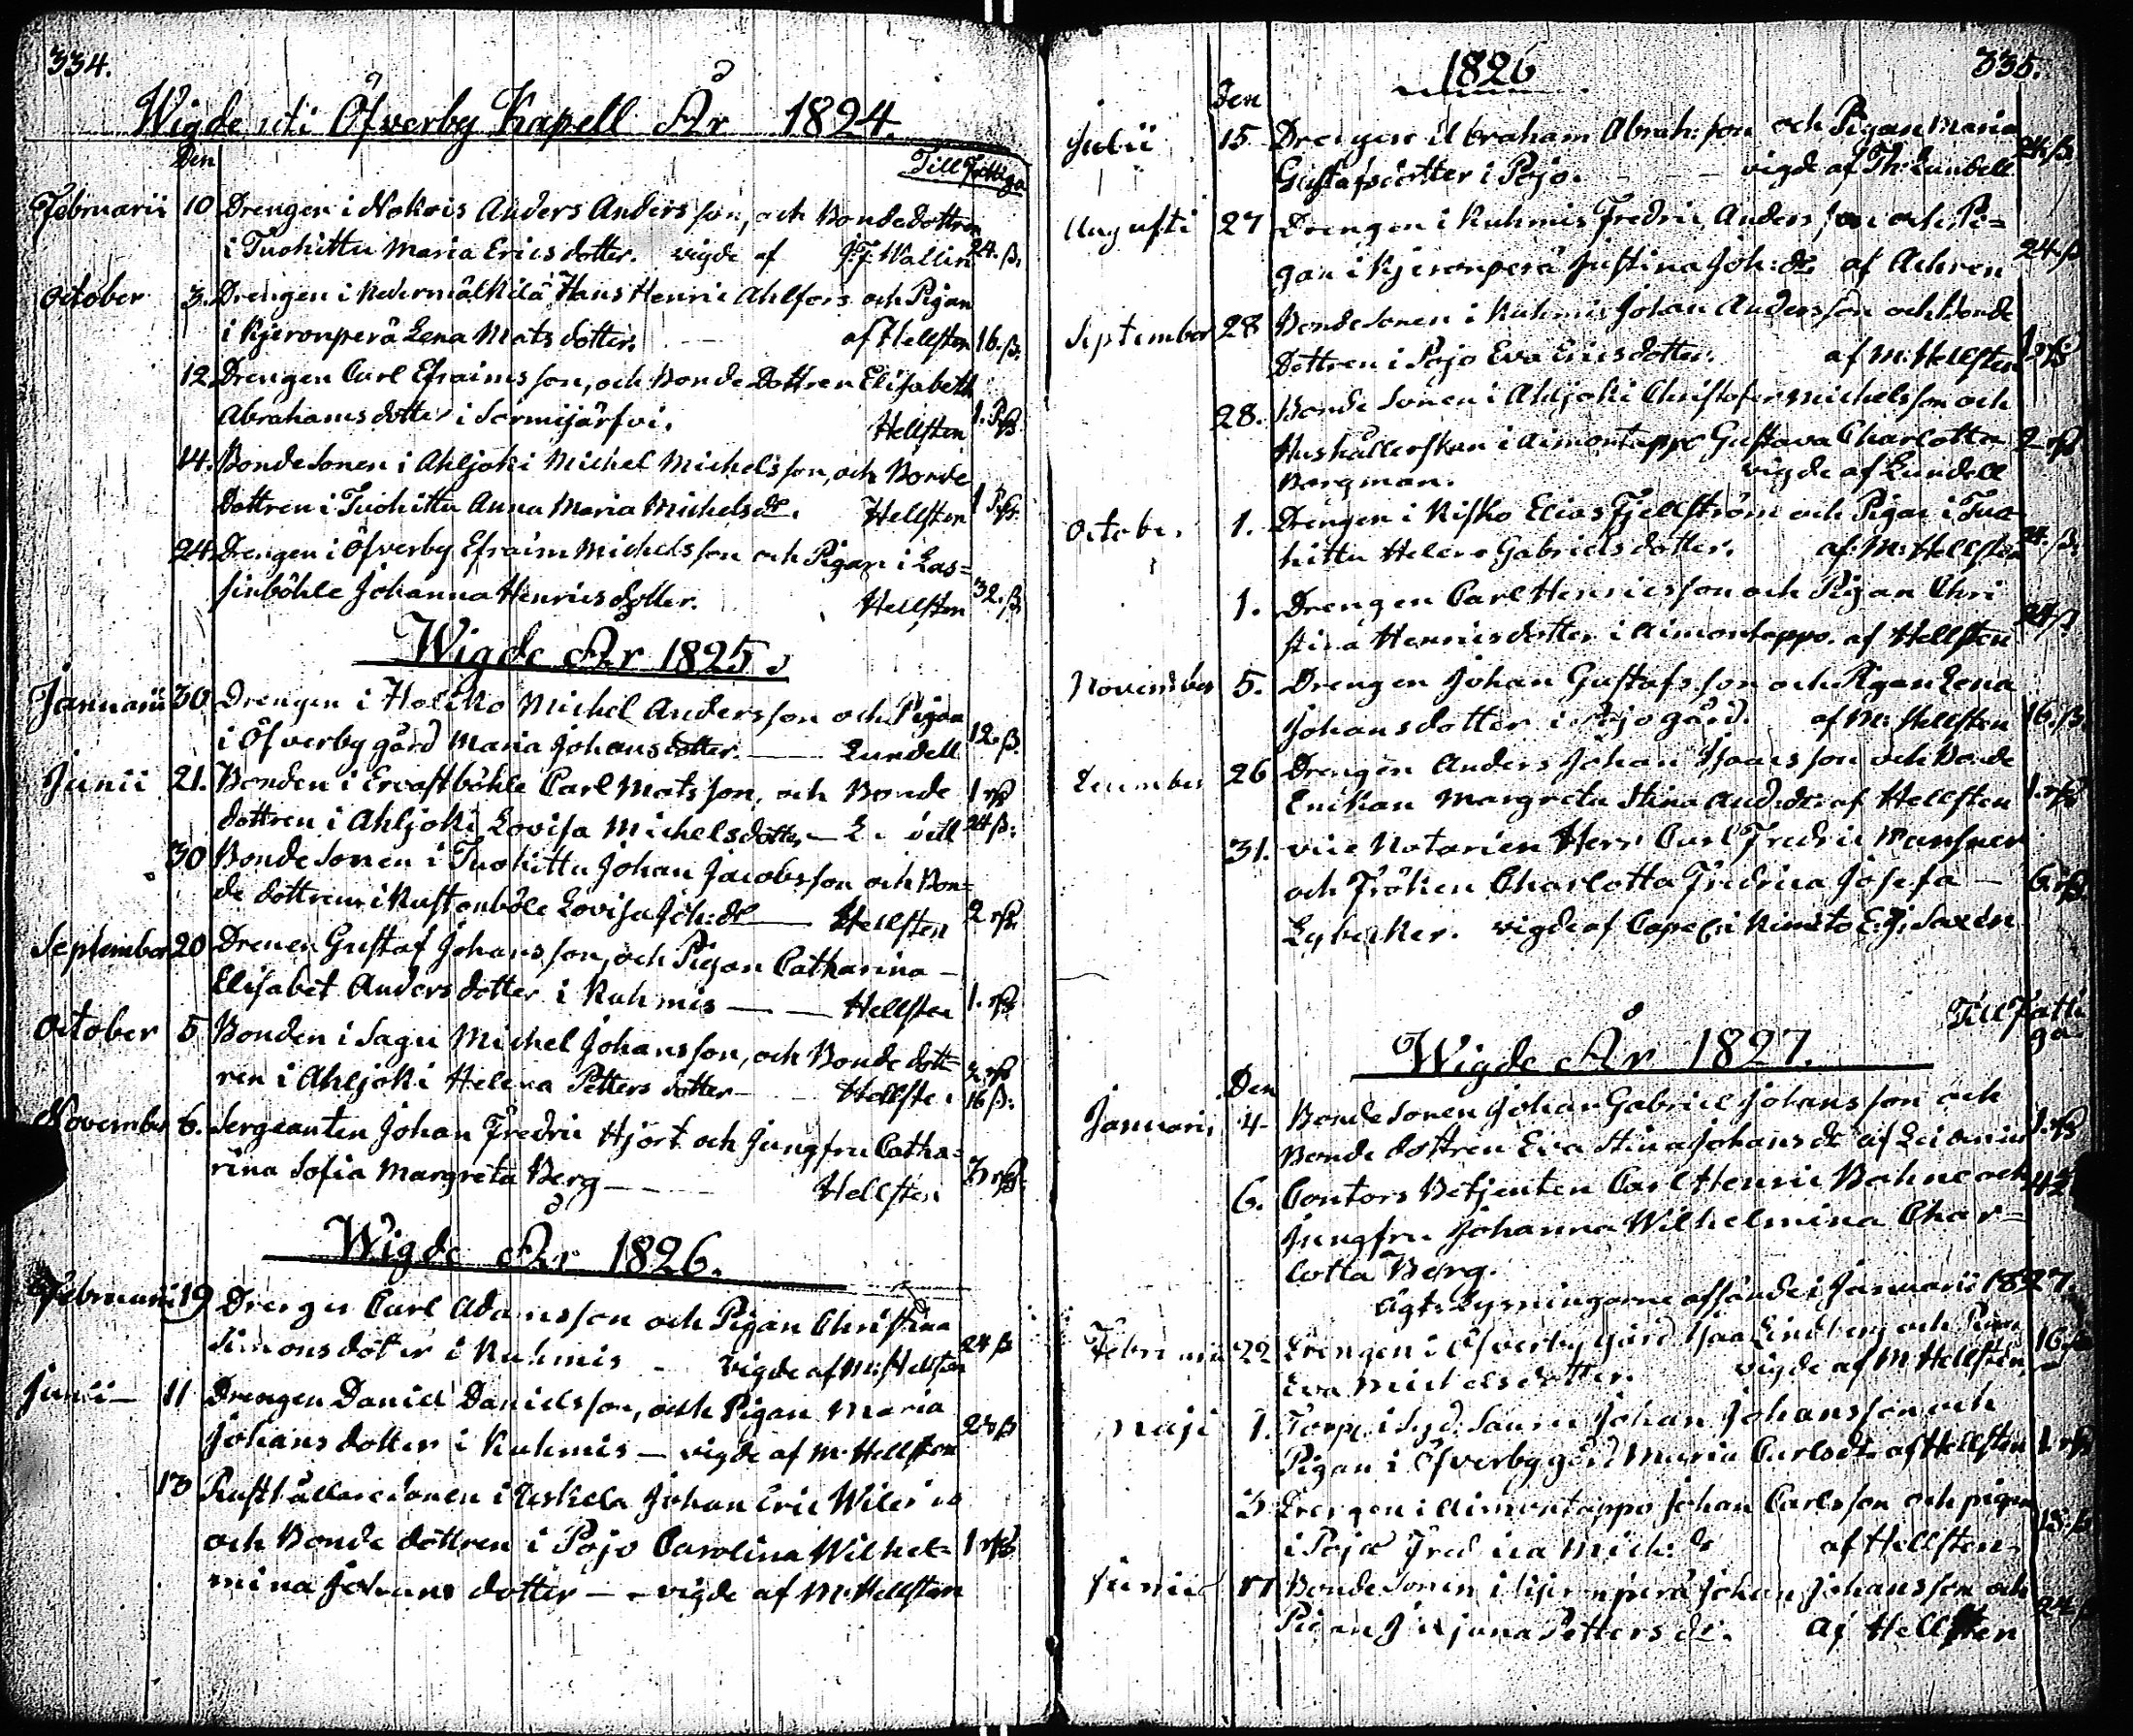 334.
Wigde uti Öfverby Kapell År 1824.
Den
Till Fattiga
Februarii 10 Drengen i Nokois Anders Andersson, och Bondedottren
i Tuohittu Maria Ericsdotter. vigde af J:F: Wallin 24.ß.
October 3. Drengen i Hans Henric Ahlfors och Pigan
i Kjeronperä Lena Matsdotter. af Hellsten 16.ß.
12. Drengen Carl Efraimsson, och Bonde Dottren Elisabeth
Abrahamsdotter i Sarmijärfvi. Hellsten
14. Bonde Sonen i Ahljoki Michel Michelsson, och Bonde
dottren i Tuohittu Anna Maria Michelsdr. Hellsten
24. Drengen i Öfverby Efraim Michelsson och Pigan i Las=
sinböhle Johanna Henricsdotter. Hellsten 32.ß.
Wigde År 1825.
Januarii 30 Drengen i Michel Andersson och Pigan
i Öfverby gård Maria Johansdotter. Lundell 12.ß.
Junii 21. Bonden i Ervastböhle Carl Matsson, och Bonde 1 rß
dottren i Ahljoki Lovisa Michelsdotter 24ß.
30 Bonde Sonen i Tuohittu Johan Jacobsson och Bon=
de dottren i Rustonböle Lovisa Joh:dr Hellsten 2 rß.
September 20 Drenen Gustaf Johansson, och Pigan Catharina
Elisabet Andersdotter i Kuhmis Hellsten 1. rß
October 5 Bonden i Sagu Michel Johansson, och Bonde dott= 2 rß
ren i Ahljoki Helena Petters dotter Hellsten 16ß.
November 6. Sergeanten Johan Fredric Hjort och Jungfru Catha=
rina Sofia Margreta Berg Hellsten 3 rß.
Wigde År 1826.
Februarii 19 Drengen Carl Adamsson och Pigan Christina
Simonsdotter i Kuhmis vigde af M: Hellsten 24ß
Junii 11 Drengen Daniel Danielsson, och Pigan Maria
Johansdotter i Kuhmis — vigde af M. Hellsten
13 Rusthållare Sonen i Uskela Johan Eric
och Bonde dottren i Pojo Carolina Wilhel= 1 rß
mina Johans dotter — vigde af M. Hellsten
1826
335.
Den
Julii 15 Drengen Abraham Abrah:son och Pigan Maria
Gustafsdotter i Pojo. vigde af Th: Lundell 24.ß.
Augusti 27 Drengen i Kuhmis Fredric Andersson och Pi=
gan i Kjeronperä Justina Joh:dr. af Achren 24.ß
September 28 Bonde Sonen i Kuhmis Johan Andersson och Bonde
Dottren i Pojo Eva Ericsdotter. af M: Hellsten
28. Bonde Sonen i Ahljoki Christofer Michelsson och
Hushållerskan i Aimontappo Gustava Charlotta 2 rß
Bergman. vigde af Lundell
October 1. Drengen i Risko Elias Fjellström och Pigan i Tuo
hittu Helena Gabrielsdotter. af: M: Hellsten 24.ß.
1. Drengen Carl Henricsson och Pigan Chri
stina Henricsdotter i Aimontappo. af Hellsten 24.ß
November 5. Drengen Johan Gustafsson och Pigan Lena
Johansdotter i Pojo gård. af M: Hellsten 16.ß.
December 26 Drengen Anders Johan Isaacsson och Bonde
Enkan Margreta Stina And:dr: af Hellsten 1. rß
31. vice Notarien Herr Carl Fredric
och Fröken Charlotta Fredrica Josefa — 6 rß.
Lybecker. vigde af Capel: i Kimito E:J: Saxén
Till Fatti
ga
Wigde År 1827.
Den
Januarii 4 Bonde Sonen Johan Gabriel Johansson och
Bonde dottren Eva Stina Johansdr af 1. rß
6. Contors Betjenten Carl Henric Bohne och
Jungfru Johanna Wilhelmina Char=
lotta Berg.
Lysningarne afsände i Januarii 1827.
Februarii 22 Drengen i Öfverby gård Isac Lindberg och Pigan
Eva Michelsdotter. vigde af M Hellsten
Maji 1. Torp: i Johan Johansson och
Pigan i Öfverby gård Maria Carlsdr. af Hellsten 1. rß
3 Drengen i Aimontappo Johan Carlsson och pigan
i Pojo Fredrica Mich:dr af Hellsten
Junii Bonde Sonen i Kjeronperä Johan Johansson och
Pigan Pettersdr. af Hellsten 24.ß